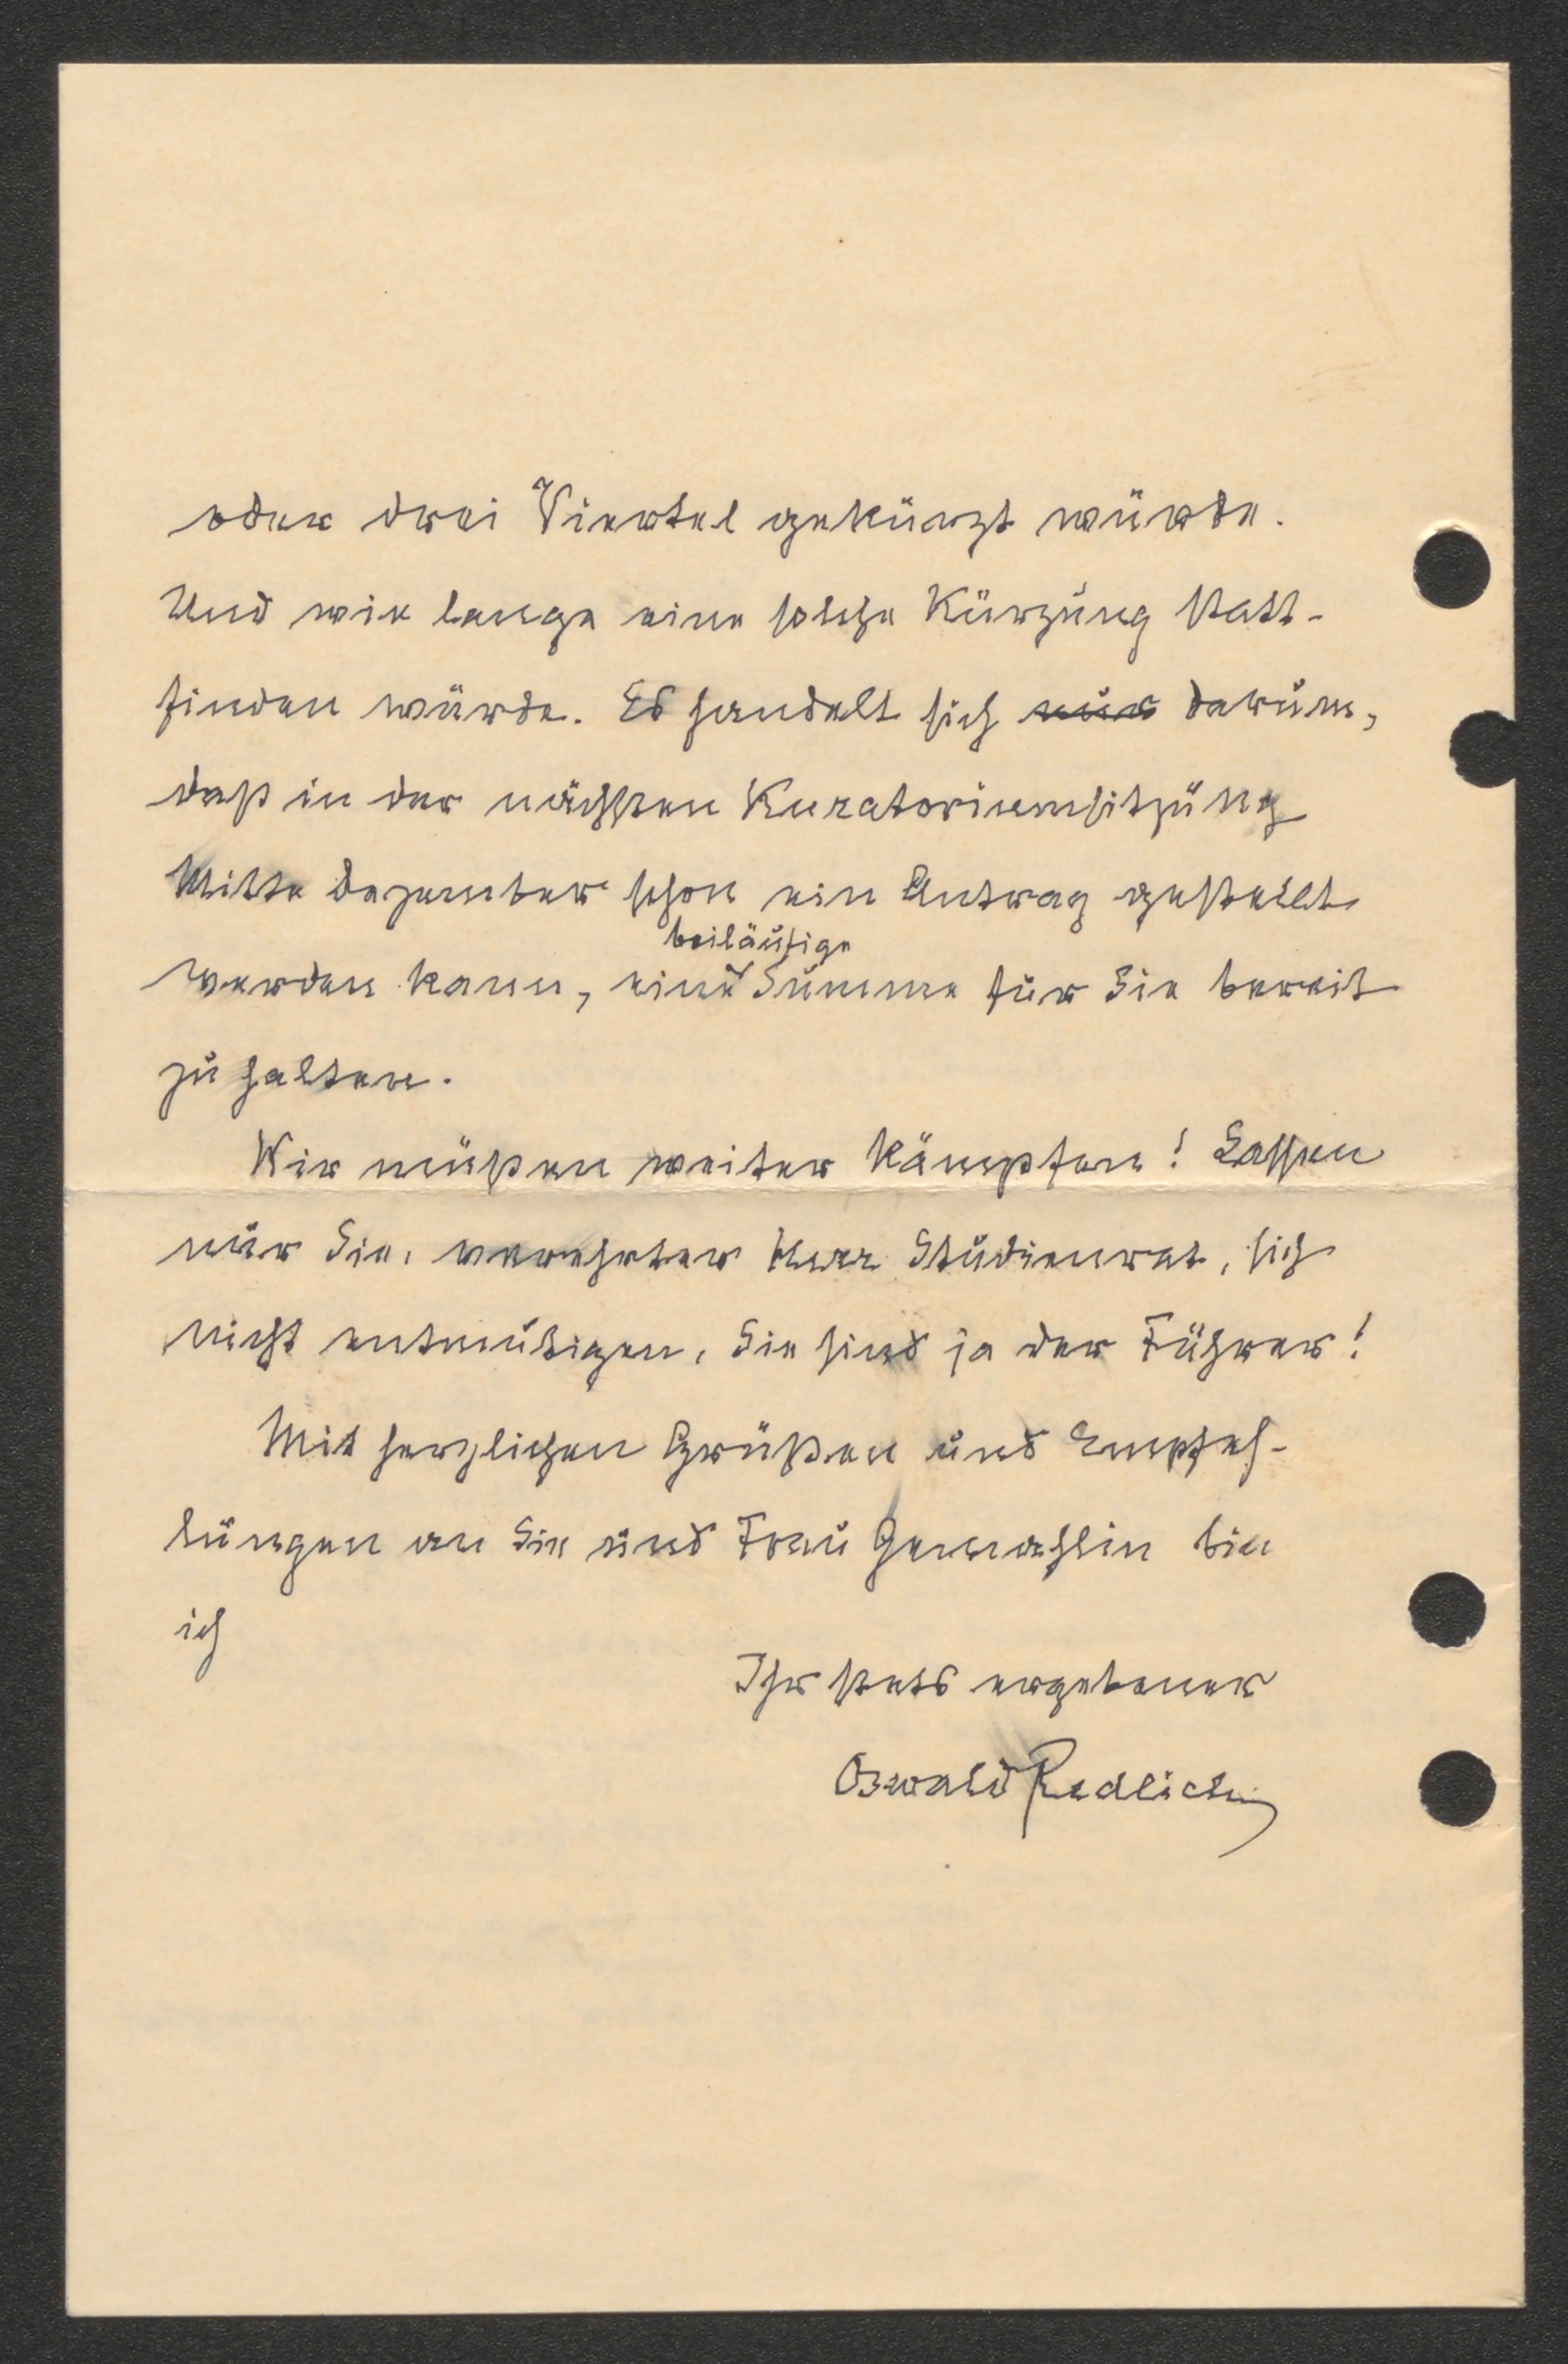 oder drei Viertel gekürzt würde.
Und wie lange eine solche Kürzung statt-
finden würde. Es handelt sich nur darum,
daß in der nächsten Kuratoriumsitzung
Mitte Dezember schon ein Antrag gestellt
beiläufige
werden kann, eine Summe für Sie bereit
zu halten.
Wir müßen weiter kämpfen! Lassen
nur Sie, verehrter Herr Studienrat, sich
nicht entmutigen, Sie sind ja der Führer!
Mit herzlichen Grüßen und Empfeh-
lungen an Sie und Frau Gemahlin bin
ich
Ihr stets ergebener
Oswald Redlich